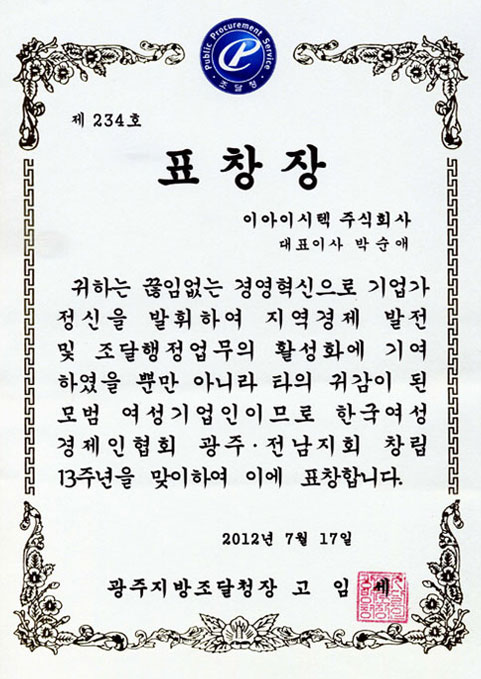 Public Procurement Service
조달청
제 234호
표창장
이아이시텍 주식회사
대표이사 박순애
귀하는 끊임없는 경영혁신으로 기업가
정신을 발휘하여 지역경제 발전
및 조달행정업무의 활성화에 기여
하였을 뿐만 아니라 타의 귀감이 된
모범 여성기업인이므로 한국여성
경제인협회 광주·전남지회 창립
13주년을 맞이하여 이에 표창합니다.
2012년 7월 17일
광주지방조달청장 고 임 세